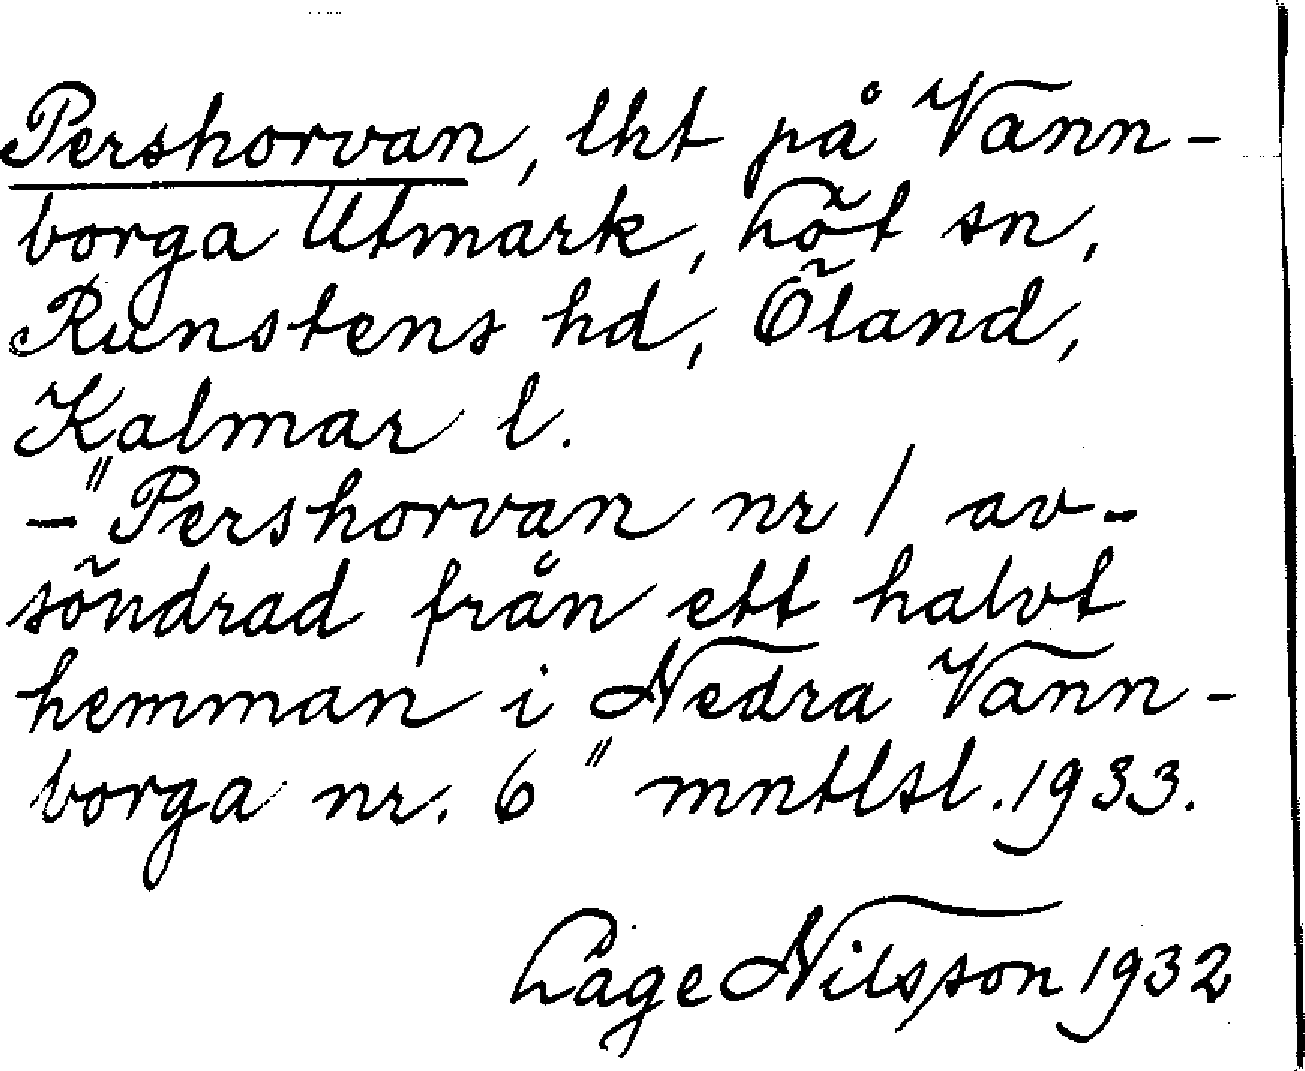 Pershorvan, lht på Vann-
borga Utmark, Löt sn,
Runstens hd, Öland,
Kalmar l.
-"Pershorvan nr 1 av-
söndrad från ett halvt
hemman i Nedra Vann-
borga nr. 6" mntlsl. 1933.
Låge Nilsson 1932